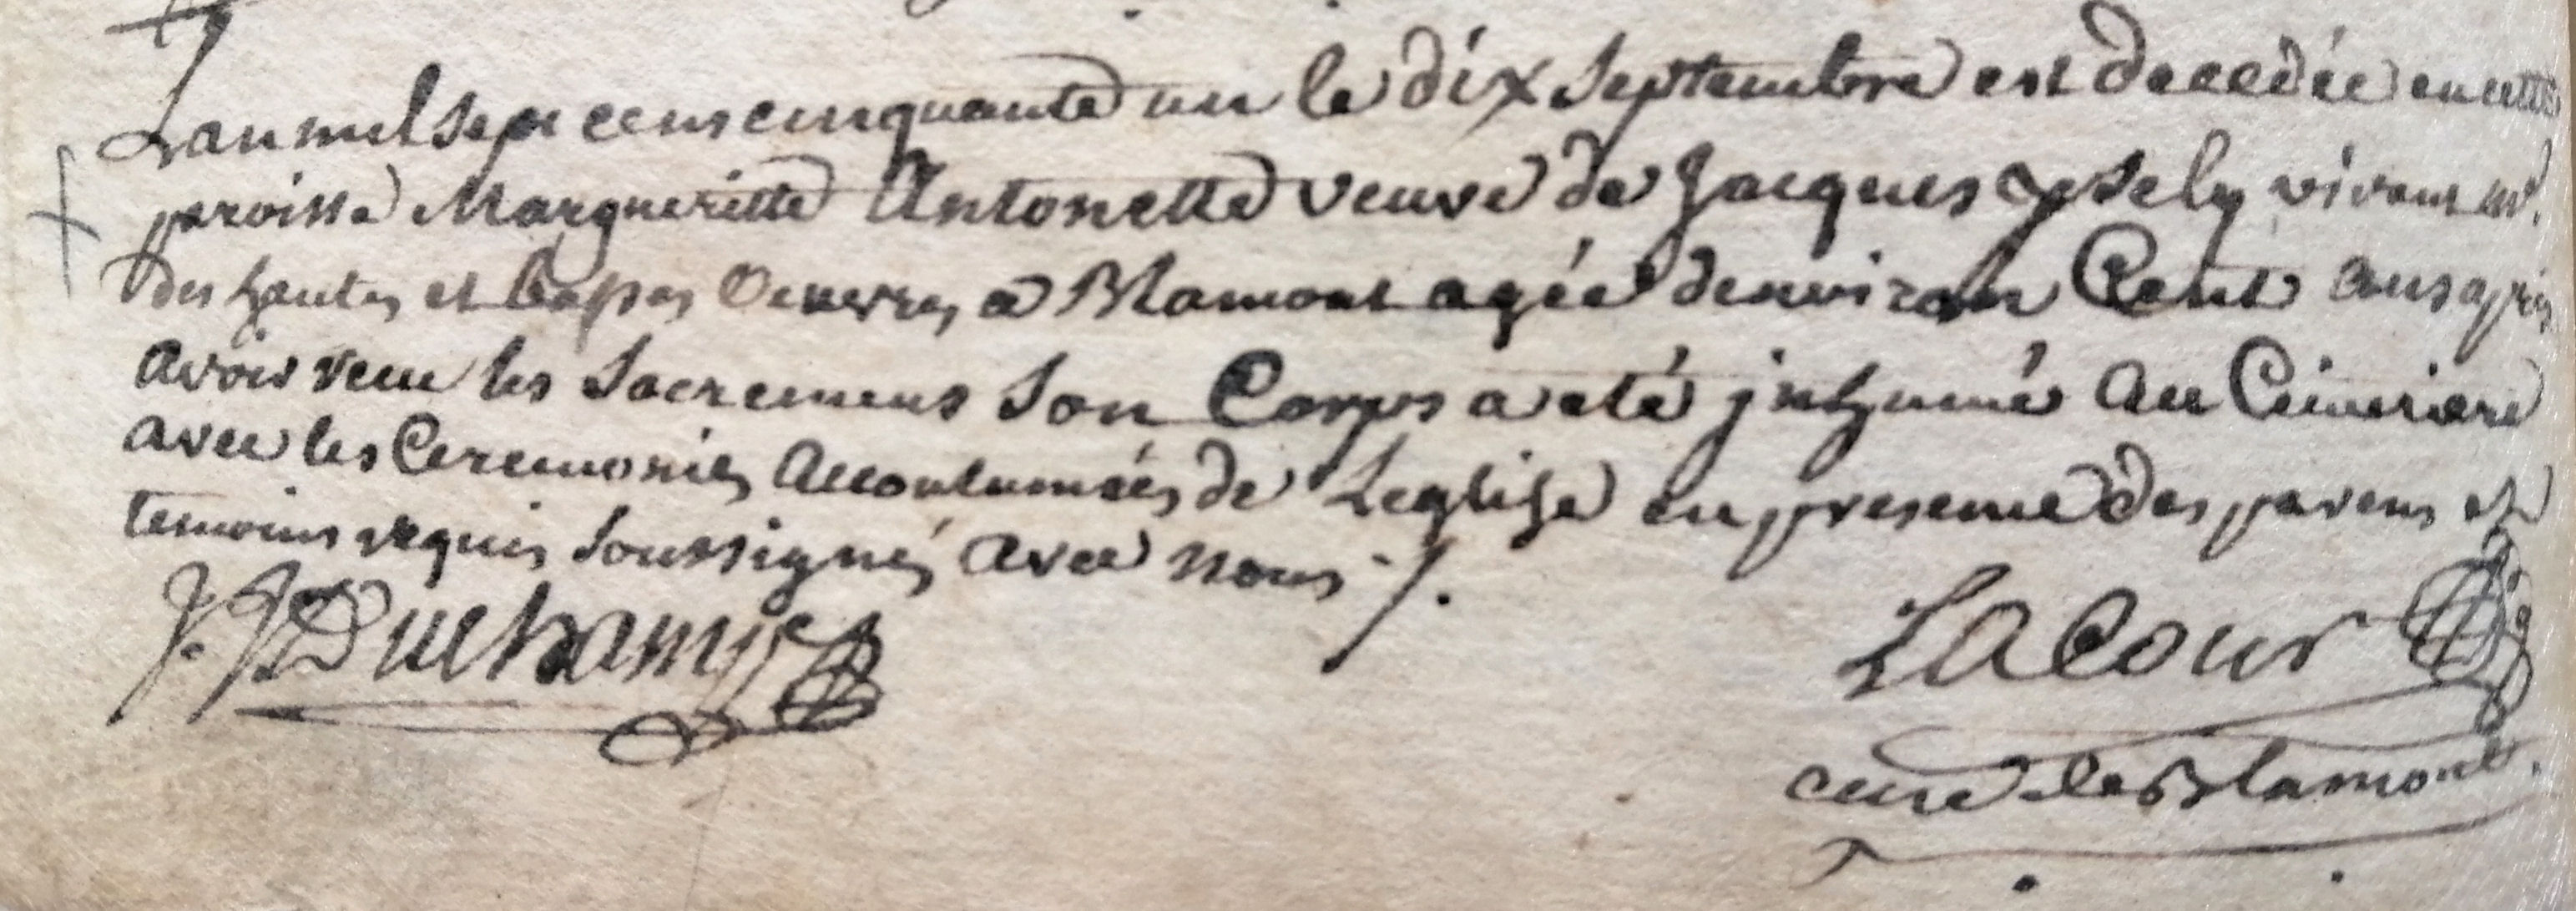 Lan mil sept cens cinquante un le dix Septembre est decedée en cette
paroisse Margueritte Antonette veuve de Jacques Ysely vivant m.
des hautes et basses Oeuvres a Blamont agée denviron Cent ans apres
avoir receu les Sacremens Son Corps a eté jnhumé au Cimetiere
avec les Ceremonies Accoutumées de Leglise en presence des parens et
temoins requis Soussignés avec nous ./.
J. F. Duchamp Lacour
curé de Blamont.